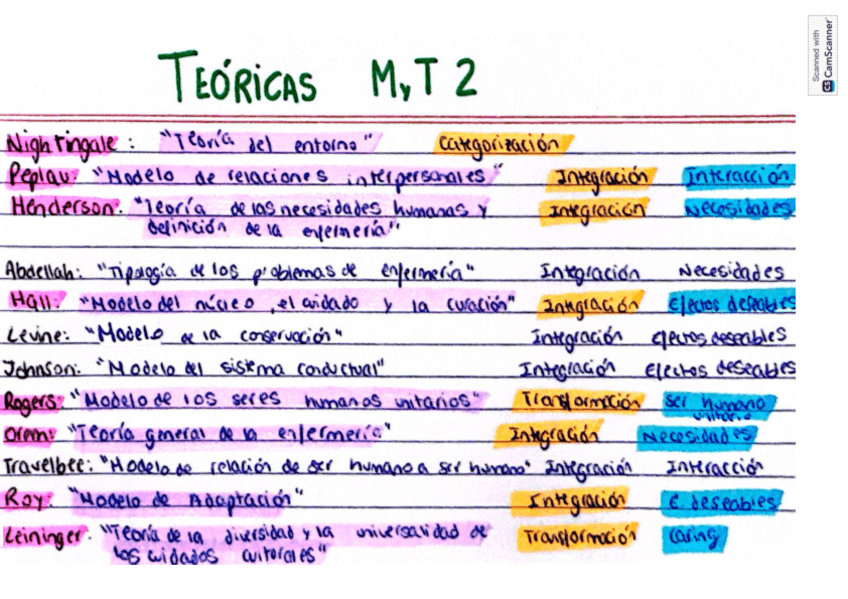 Scanned with
CS CamScanner
TEÓRICAS M,T 2
Nightingale: "Teoría del entorno" Categorización
Peplau: "Modelo de relaciones interpersonales" Integración Interacción
Henderson: "Teoría de las necesidades humanas y Integración Necesidades
definición de la enfermería"
Abdellah: "Tipología de los problemas de enfermería" Integración Necesidades
Hall: "Modelo del núcleo, el cuidado y la curación" Integración Efectos deseables
Levine: "Modelo de la conservación" Integración efectos deseables
Johnson: "Modelo del sistema conductual" Integración Efectos deseables
Rogers: "Modelo de los seres humanos unitarios" Transformación ser humano
unitario
Orem: "Teoría general de la enfermería" Integración Necesidades
Travelbee: "Modelo de relación de ser humano a ser humano" Integración Interacción
Roy: "Modelo de Adaptación" Integración E. deseables
Leininger: "Teoría de la diversidad y la universalidad de Transformación caring
los cuidados culturales"